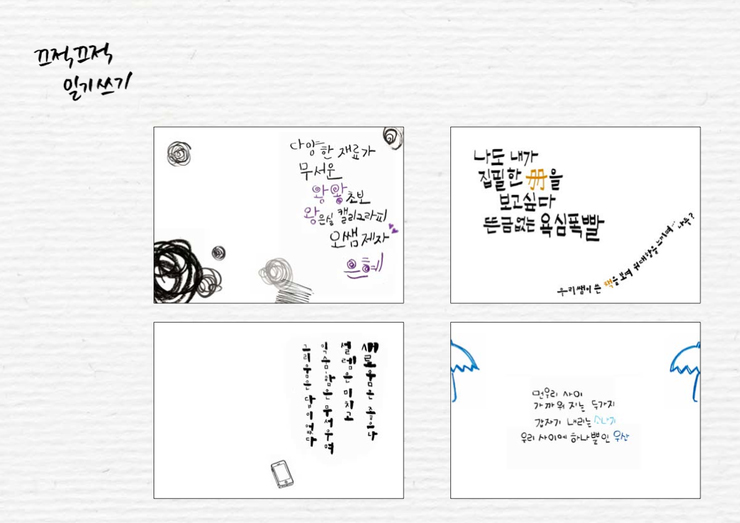 끄적끄적
일기쓰기
다양한 재료가
무서운
왕왕초보
왕은심 캘리그라피
오쌤제자
은혜
나도 내가
집필한 冊을
보고싶다
뜬금없는 욕심폭빨
우리쌤이 쓴 책을 보며
새로움은 좋으나
설렘은 미치고
익숨함은 무서우며
그리움은 당이었다
먼우리 사이
가까워 지는 두가지
갑자기 내리는 소나기
우리 사이에 하나뿐인 우산